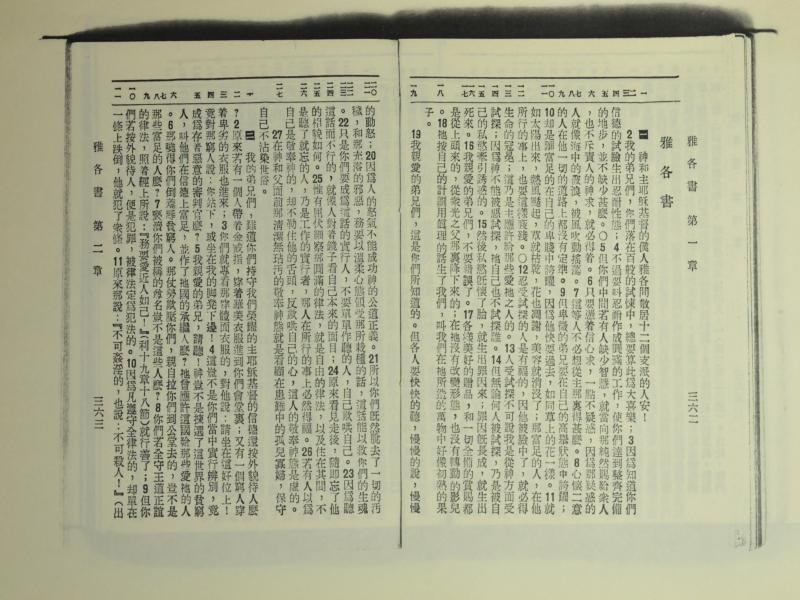 雅各書 第一章 三六二
雅各書
一 神和主耶穌基督的僕人雅各問散居十二個支派的人安！
2我的弟兄們，你們落在百般的試煉中，總要算此爲大喜樂；3因爲知道你們
信德的試驗生出忍耐性德；4不過要叫忍耐作成圓滿的工作，使你們達到整齊完備
的地步，並不缺少甚麼。〇5但你們中間若有人缺少智慧，就當向那純然賜給衆人
，也不斥責人的神求，就必得着。6只要憑着信心求，一點不疑惑，因爲那疑惑的
人就像海中的波浪，被風吹動搖蕩。7這等人不必想從主那裏得甚麼；8心懷二意
的人在他一切的道路上都沒有定準。9但卑微的弟兄要在自己的高舉狀態中誇
10却是那富足的在自己的卑賤中誇，因爲他快要過去，如同草上的花一樣。11就
如太陽出來，熱風颳起，草就枯乾，花也凋謝，美容就消沒了；那富足的人，在他
所行的事上，也要這樣衰殘。〇12忍受試探的人是有福的，因他被驗中了，就必得
生命的冠冕；這乃是主應許給那些愛他之人的。13人受試探不可說我是從神方面受
試探；因爲神不能被惡試探，他也不試探誰。14但無論何人被試探，乃是被自
己的私慾牽引誘惑的。15然後私慾既懷了胎，就生出罪因來；罪因既長成，就生出
死來。16我親愛的弟兄們，不要錯誤了。17各樣美好的贈品，和一切全備的賞賜都
是從上頭來的，從衆光之父那裏降下來的；在祂沒有改變形態，也沒有轉動的影兒
。18祂按自己的計謀用眞理的話生了我們，叫我們在祂所造的萬物中好像初熟的果
子。
19我親愛的弟兄們，這是你們所知道的。但各人要快快的聽，慢慢的說，慢慢
的動怒；20因爲人的怒氣不能成功神的公道正義。21所以你們既然脫去了一切的污
穢，和那充溢的邪惡，務要以溫柔心態領受那所栽種的話，這話能以救你們的生魂
。22只是你們要成爲這話的實行人，不要單單作聽的人，自己欺哄自己。23因爲聽
這話而不行的，就像人對着鏡子看自己本來的面目；24原來看見走後，隨即忘了他
的相貌如何。25惟有屈伏細察那圓滿的律法，就是自由的律法，以及住在其間，不
是聽了就忘的人，乃是工作的實行者，那人在所行的事上必然得福。26若有人以爲
自己是敬奉神的，却不勒住他的舌頭，反欺哄自己的心，這人的敬奉神態是虛的。
27在神和父面前那清潔無玷污的敬奉神態就是看顧在患難中的孤兒寡婦，保守
自己不沾染世俗。
二 我的弟兄們，雖這你們持守我們榮耀的主耶穌基督的信德還按外貌待人麼
？2原來若有一個人帶着金戒指，穿着華美衣服進到你們會堂裏；又有一個窮人穿
着卑劣的衣服也進來；3你們就專看那穿體面衣服的，對他說：請坐在這好位上！
竟對那窮人說：你站下，或坐在我的脚凳下邊！4這豈不是你們當中實行辨別，竟
成爲存着惡意的審判官麼？5我親愛的弟兄，請聽！神豈不是揀選了這世界的貧窮
人，叫他們在信德上富足，並作了祂國的承繼人麼？祂曾應許這國給那些愛祂的人
。6那曉得你們倒羞辱貧窮人。那仗勢欺壓你們，親自拉你們到公堂去的，豈不是
那些富足的人麼？7褻瀆你們被稱的尊名豈不是這些人麼？8你們若全守王道正誼
的律法，照着經上所說：『務要愛近人如己！』（利十九章十八節）就行善了；9但你
們若按外貌待人，便是犯罪，被律法定爲犯法的。10因爲凡遵守全律法的，却單在
一條上跌倒，他就犯了衆條。11原來那說：『不可姦淫的，也說：不可殺人！』（出
雅各書 第二章 三六三